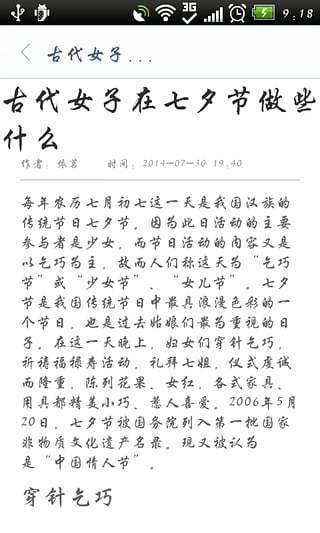 3G
9:18
古代女子...
古代女子在七夕节做些
什么
作者：依茗 时间：2014-07-30 19:40
每年农历七月初七这一天是我国汉族的
传统节日七夕节。因为此日活动的主要
参与者是少女，而节日活动的内容又是
以乞巧为主，故而人们称这天为“乞巧
节”或“少女节”、“女儿节”。七夕
节是我国传统节日中最具浪漫色彩的一
个节日，也是过去姑娘们最为重视的日
子。在这一天晚上，妇女们穿针乞巧，
祈祷福禄寿活动，礼拜七姐，仪式虔诚
而隆重，陈列花果、女红，各式家具、
用具都精美小巧、惹人喜爱。2006年5月
20日，七夕节被国务院列入第一批国家
非物质文化遗产名录。现又被认为
是“中国情人节”。
穿针乞巧